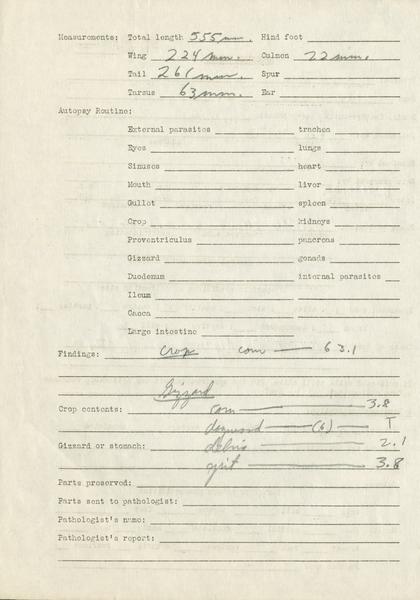 Measurements: Total length 555 mm. Hind foot
Wing 224 mm. Culmen 22 mm.
Tail 261 mm. Spur
Tarsus 63 mm. Ear
Autopsy Routine:
External parasites trachea
Eyes lungs
Sinuses heart
Mouth liver
Gullet spleen
Crop kidneys
Proventriculus pancreas
Gizzard gonads
Duodenum internal parasites
Ileum
Caeca
Large intestine
Findings: crop corn — 63.1
Gizzard
Crop contents: corn — 3.8
dogwood — (6) — T
Gizzard or stomach: debris — 2.1
grit — 3.8
Parts preserved:
Parts sent to pathologist:
Pathologist's name:
Pathologist's report: